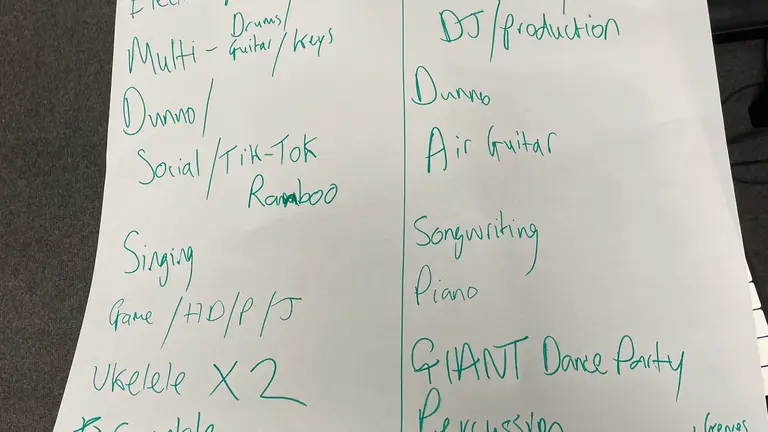 Multi - Drums/
Guitar/Keys
Dunno/
Social/Tik-Tok
Ramboo
Singing
Game/HD/P/J
Ukelele X 2
DJ/production
Dunno
Air Guitar
Songwriting
Piano
GIANT Dance Party
Percussion